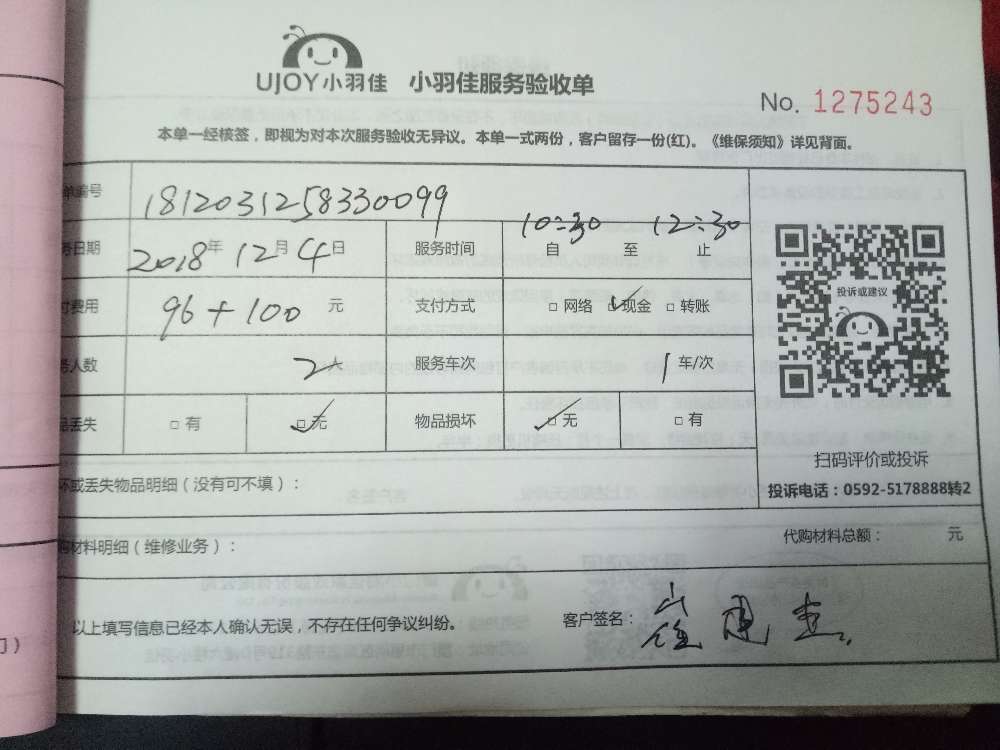 UJOY小羽佳 小羽佳服务验收单
No. 1275243
本单一经核签，即视为对本次服务验收无异议。本单一式两份，客户留存一份(红)。《维保须知》详见背面。
单编号 1812031258330099
务日期 2018年12月4日 服务时间 10:30 12:30
自 至 止
付费用 96+100 元 支付方式 □ 网络 ☑ 现金 □ 转账
投诉或建议
务人数 2人 服务车次 1车/次
品丢失 □ 有 ☑ 无 物品损坏 ☑ 无 □ 有
扫码评价或投诉
坏或丢失物品明细（没有可不填）：
投诉电话：0592-5178888转2
购材料明细（维修业务）：
代购材料总额： 元
以上填写信息已经本人确认无误，不存在任何争议纠纷。
客户签名：